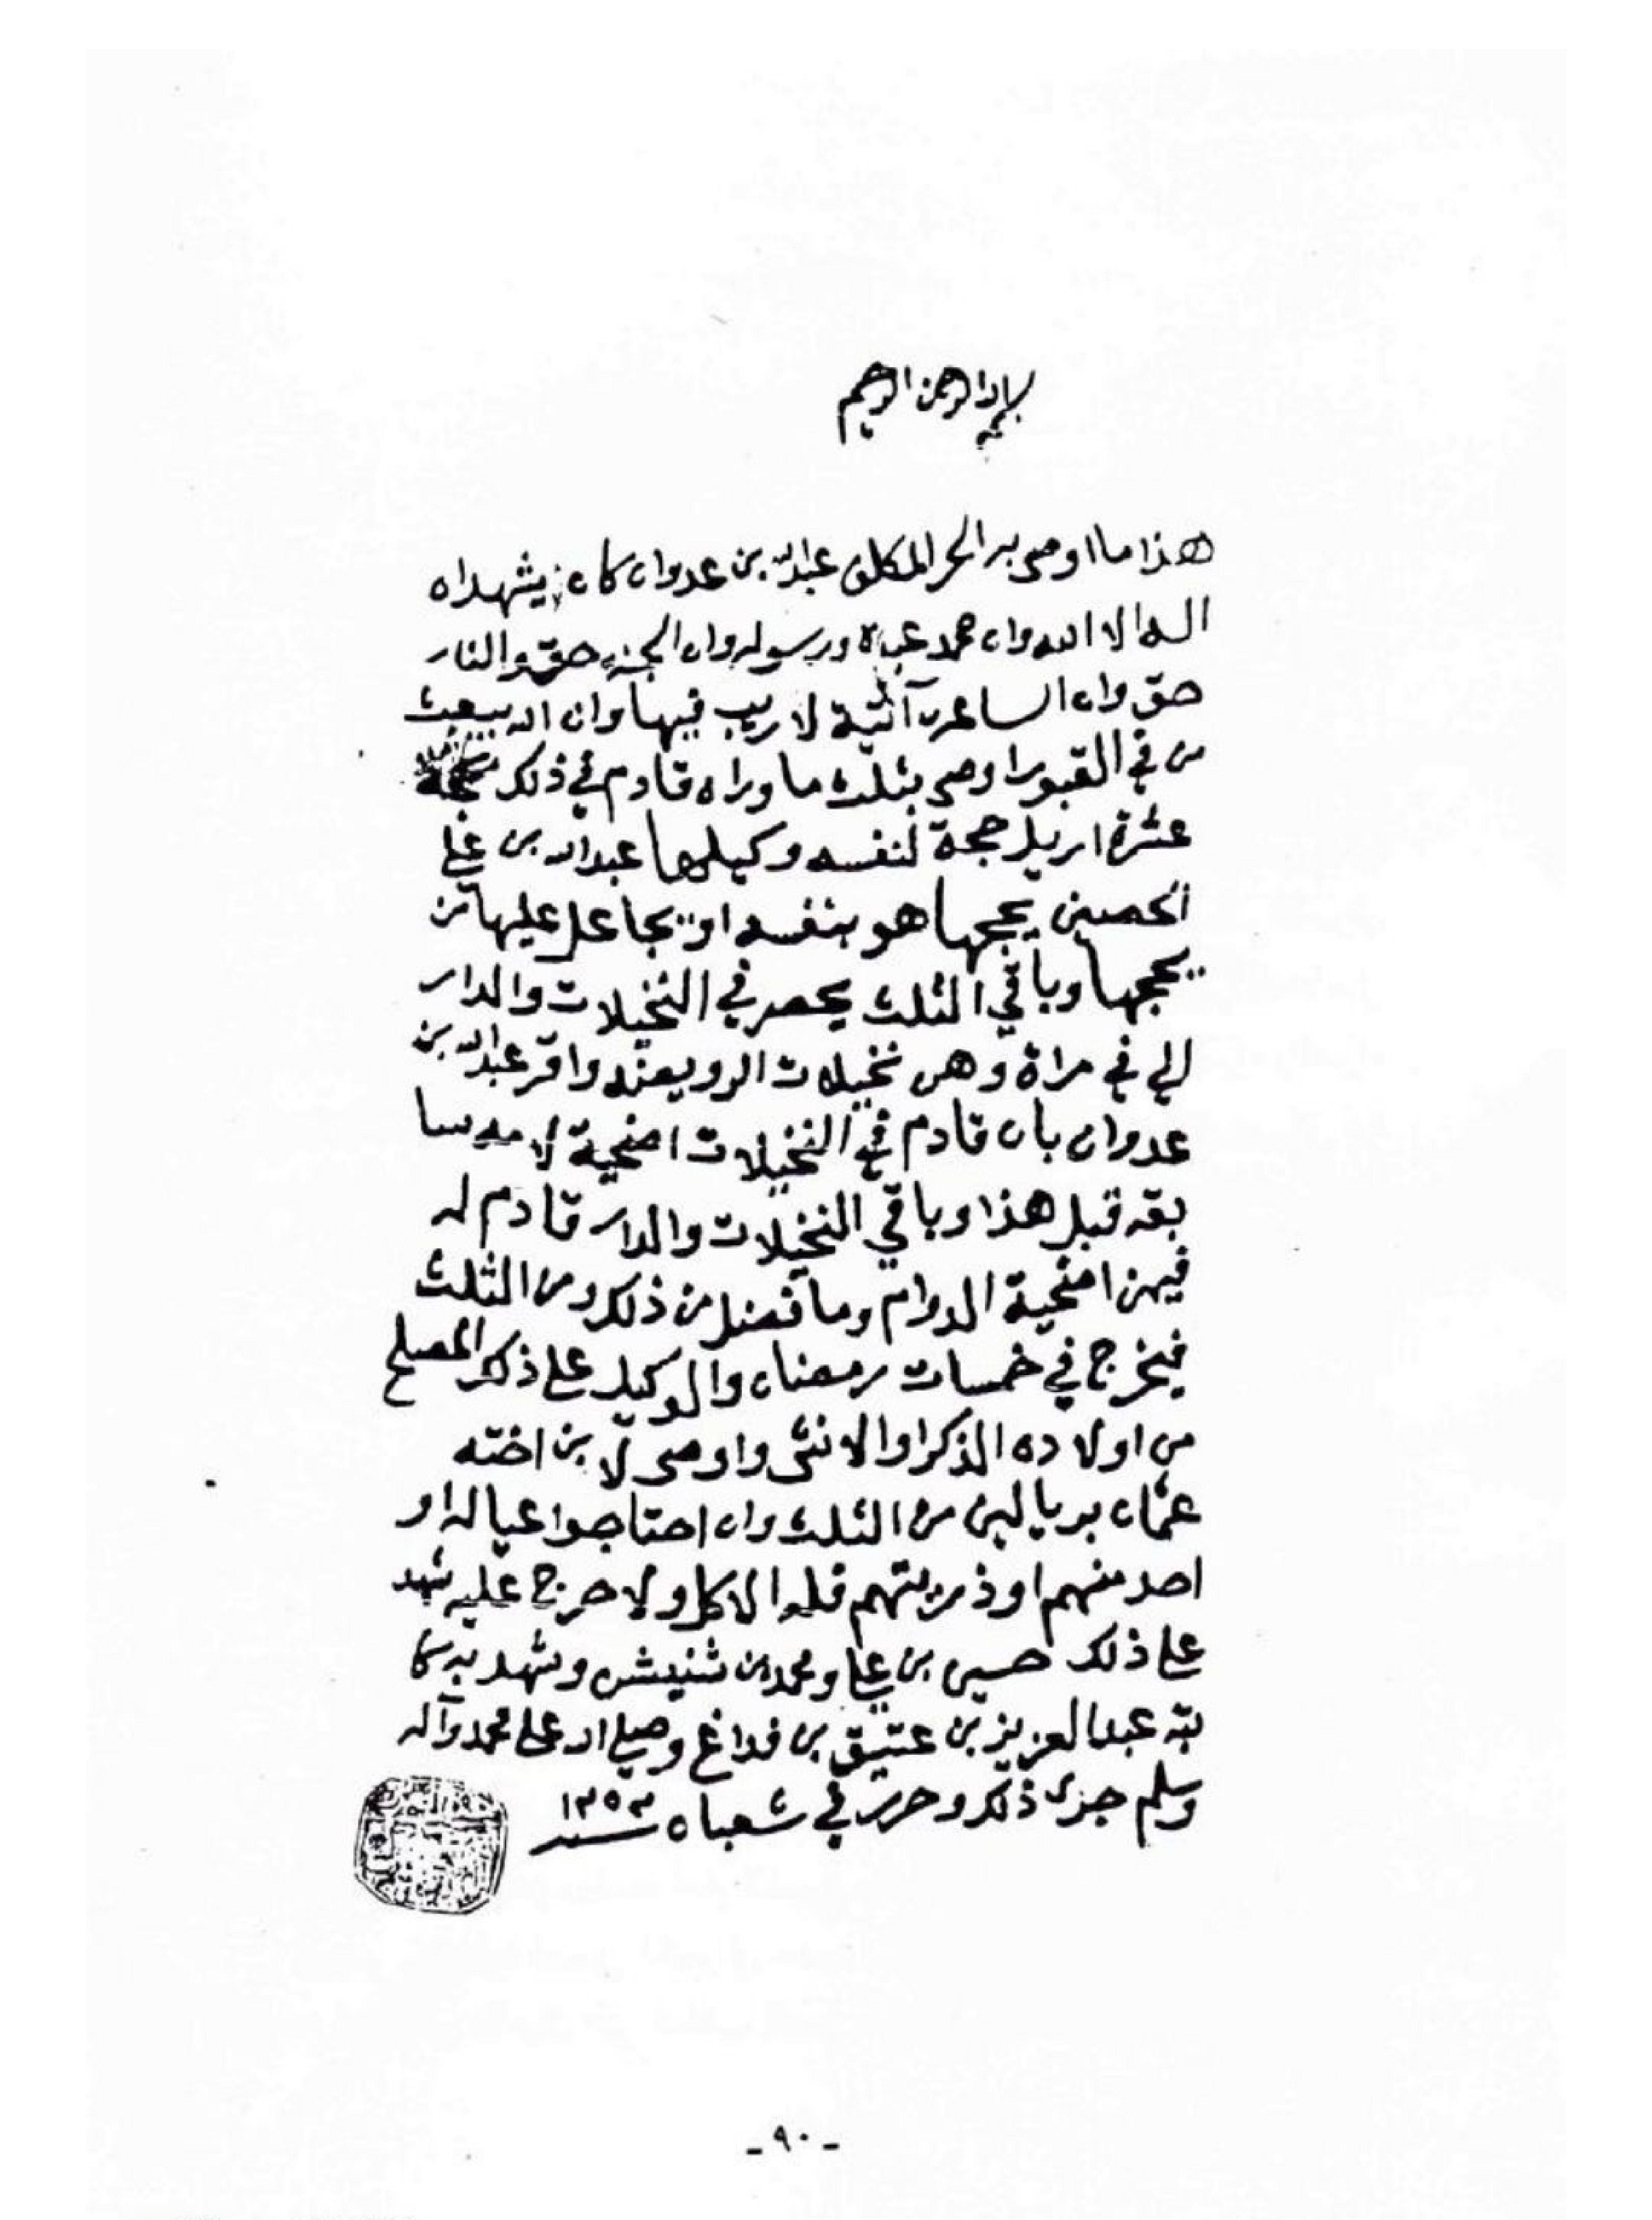 بسم الله الرحمن الرحيم
هذا ما اوصى به الحر المكلف عبدالله بن عدوان كان يشهد ان
اله الا الله وان محمد عبده ورسوله وان الجنه حق والنار
حق وان الساعه آتية لا ريب فيها وان الله يبعث
من في القبور اوصى بثلث ما وراه قادم في ذلك
عشرة اريل حجة لنفسه وكيلها عبدالله بن علي
الحصين يحجها هو بنفسه او يجاعل عليها من
يحجها وباقي الثلث يحصر في النخيلات والدار
الي في مراة وهن نخيلات الرويعنه واقر عبدالله بن
عدوان بان قادم في النخيلات اضحية لامه سا
بقه قبل هذا وباقي النخيلات والدار قادم له
فيهن اضحية الدوام وما فضل من ذلك ومن الثلث
فيخرج في خمسات رمضان والوكيل على ذلك المصلح
من اولاده الذكر او الانثى واوصى لابن اخته
عثمان بريالين من الثلث وان احتاجوا عياله او
احد منهم او ذريتهم فله الاكل ولا حرج عليه شهد
على ذلك حسين بن علي ومحمد بن شنيشن وشهد به كا
تبه عبدالعزيز بن عتيق بن فداغ وصلى الله على محمد وآله
وسلم جرى ذلك وحرر في شعبان سنه ١٣٥٣
- ٩٠ -